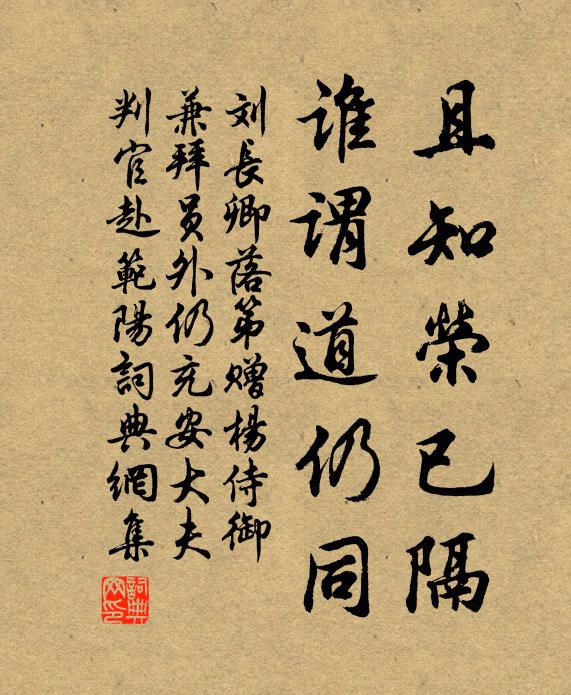 且知榮已隔
誰謂道仍同
刘長卿落第赠楊侍御
兼拜员外仍充安大夫
判官赴範陽詞典網集
詞典网印